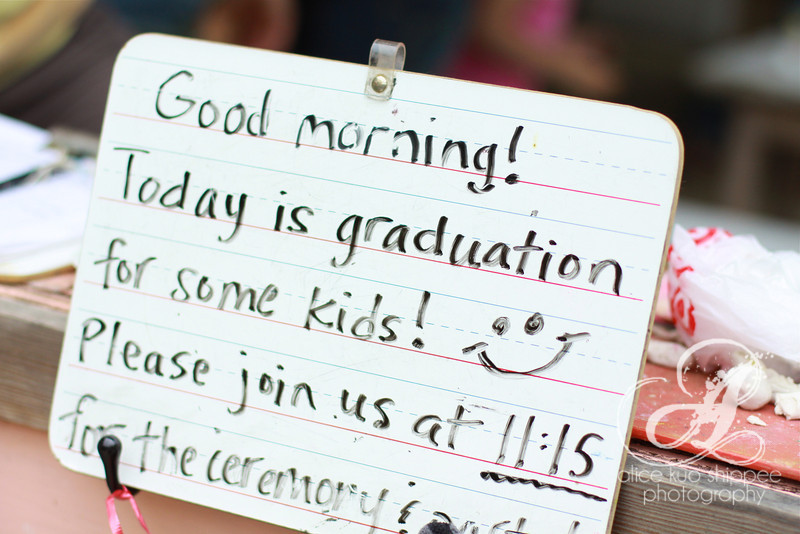 Good morning!
Today is graduation
for some kids!
Please join us at 11:15
for the ceremony
alice kuo shippee
photography